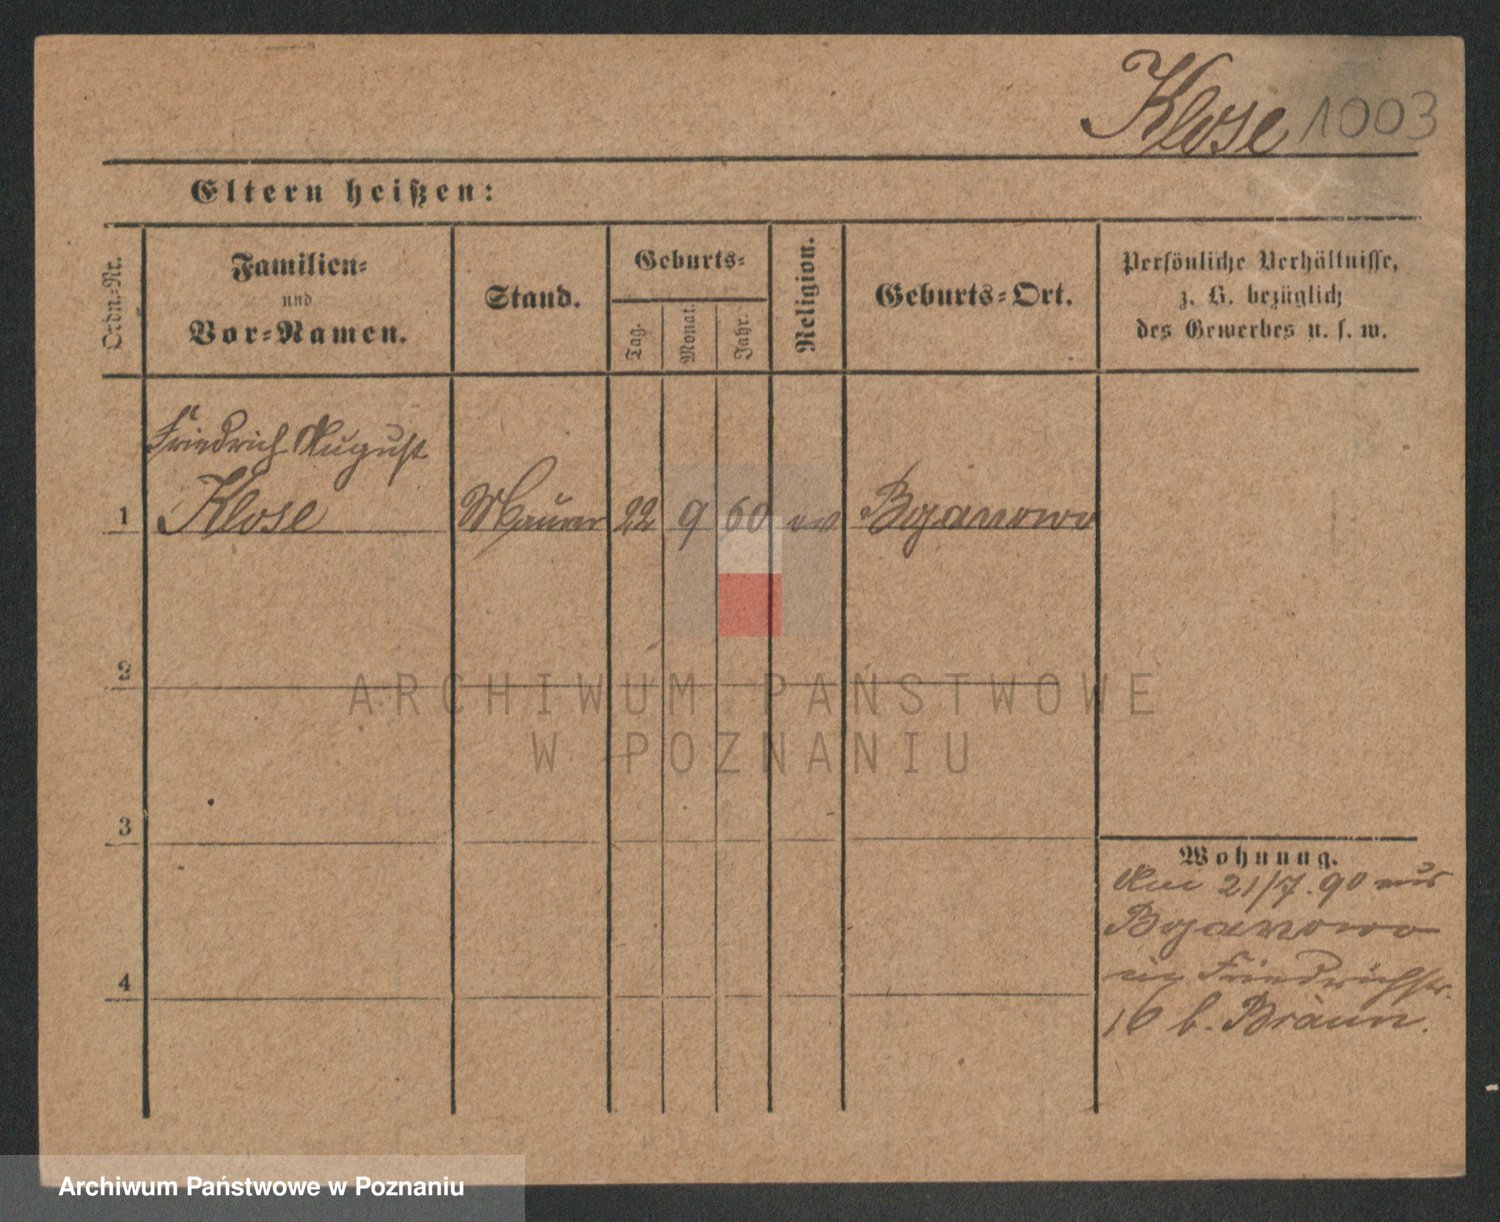 Klose 1003
Eltern heißen:
Ordn.-Nr.
Familien-
und
Vor-Namen.
Stand.
Geburts-
Tag.
Monat.
Jahr.
Religion.
Geburts-Ort.
Persönliche Verhältnisse,
z. B. bezüglich
des Gewerbes u. s. w.
Friedrich August
1 Klose Maurer 22 9 60 ev Bganowo
2
ARCHIWUM PAŃSTWOWE
W POZNANIU
3
Wohnung.
Am 21/7. 90 aus
Bganowo
4
in Friedrichstr.
16 b. Braun.
Archiwum Państwowe w Poznaniu